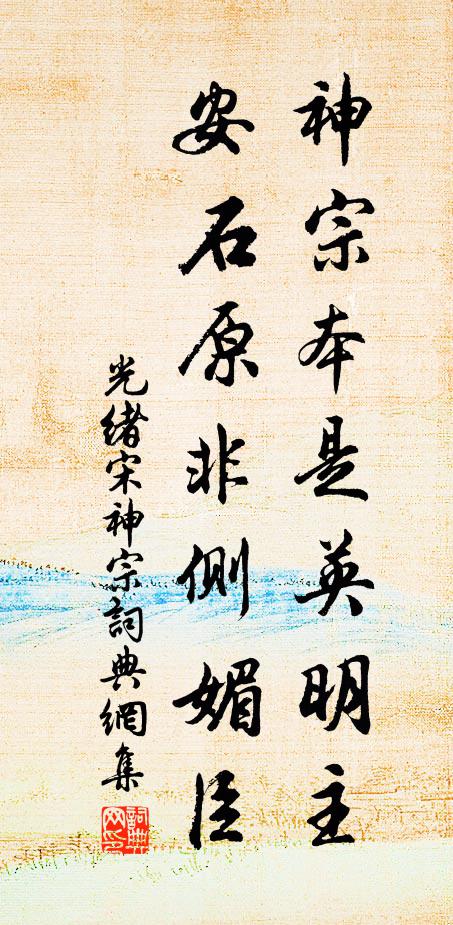 神宗本是英明主
安石原非側媚臣
光緒宋神宗詞典網集
詞典網印